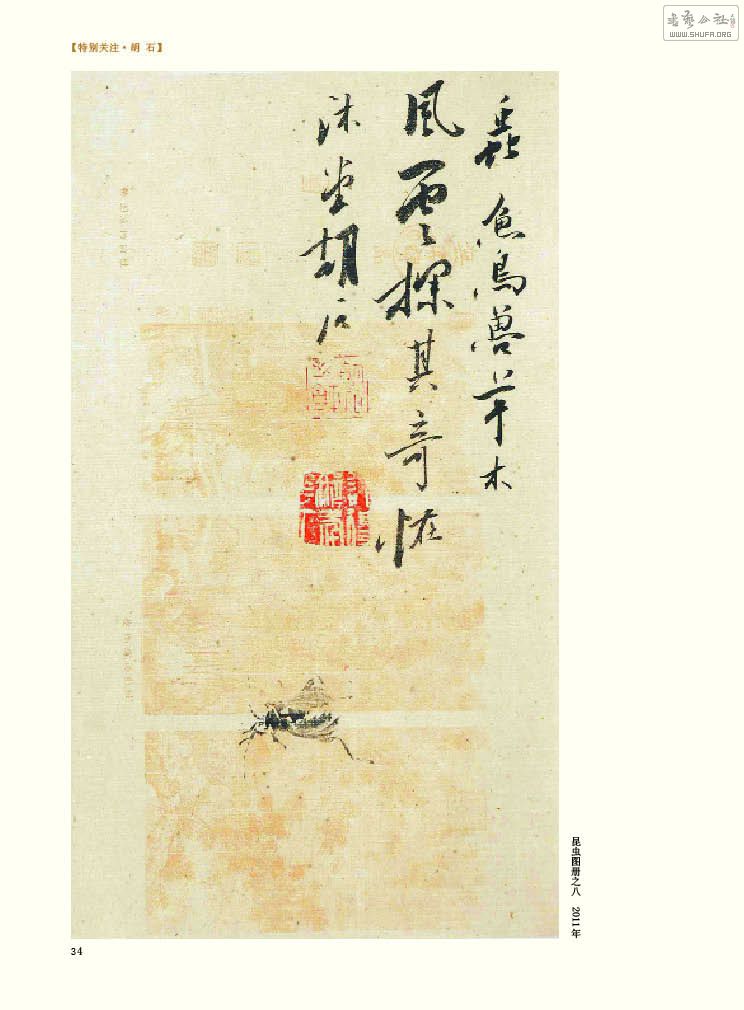 書藝公社
WWW.SHUFA.ORG
【特别关注·胡 石】
蟲魚鳥獸草木
風雲探其奇怪
沐堂胡石
昆虫图册之八 2011年
34